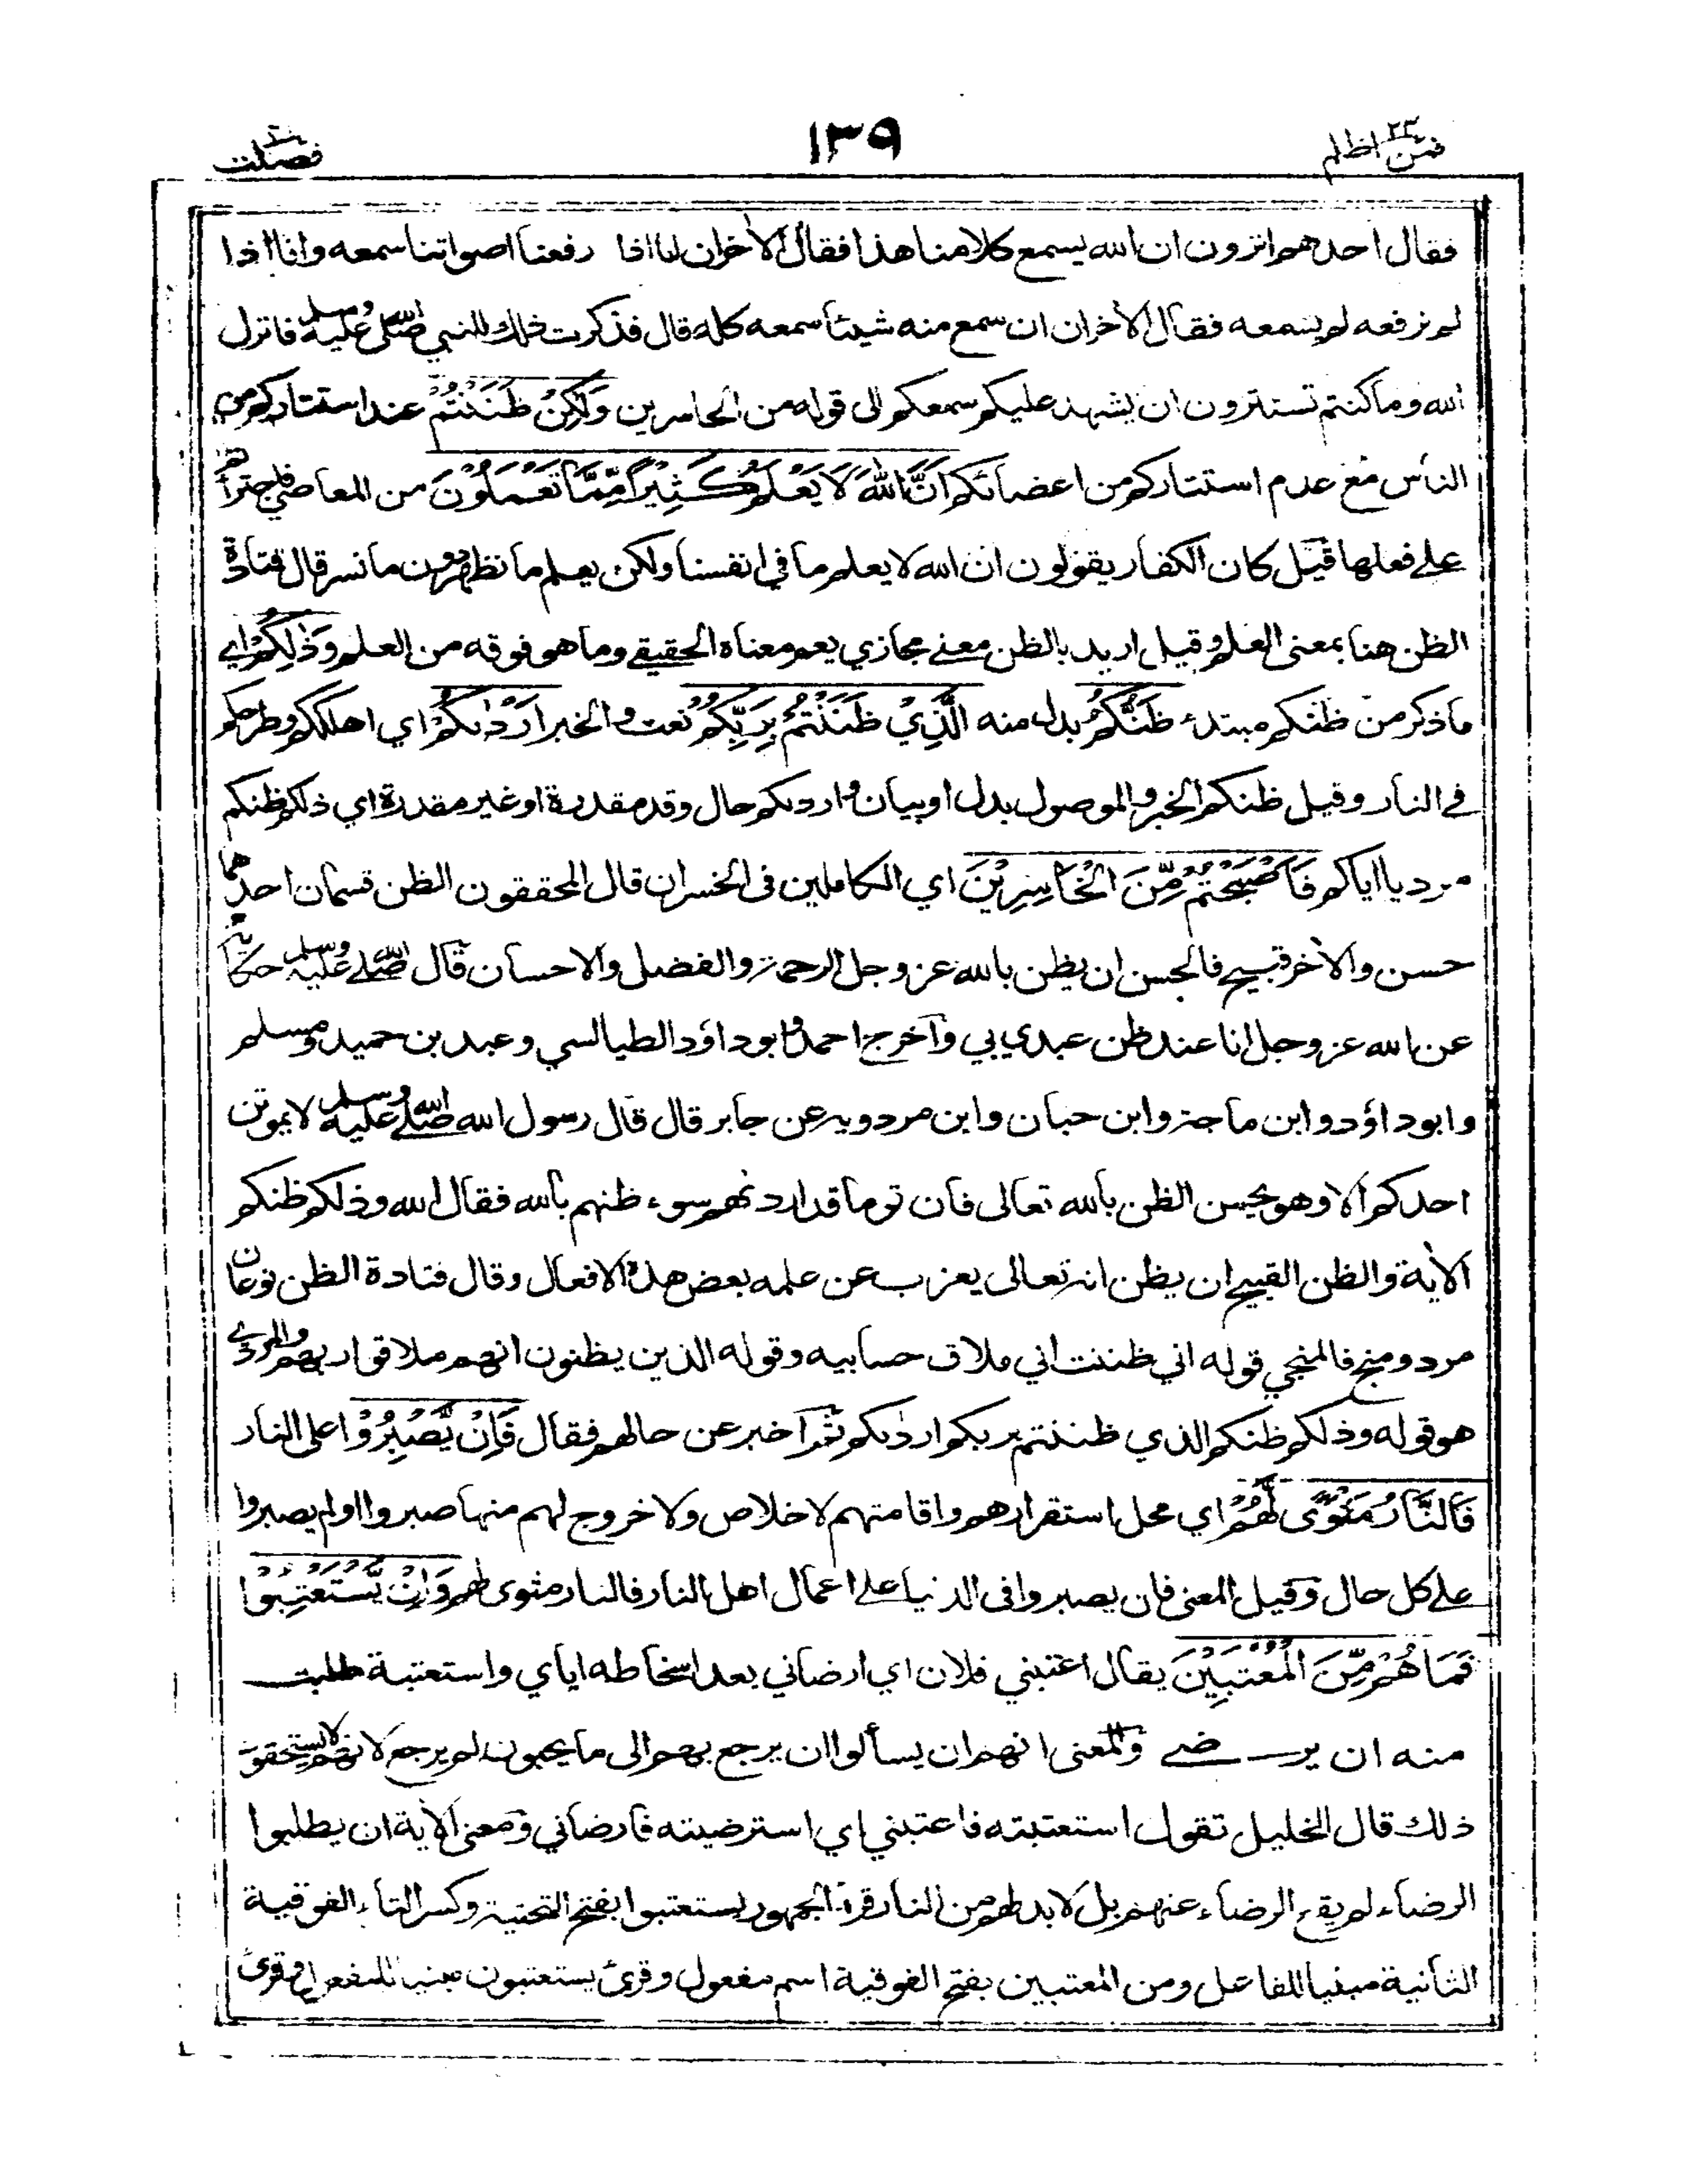 فمن اظلم ٢٣
١٣٩
فصلت
فقال احدهم اترون ان الله يسمع كلامنا هذا فقال الأخران انا اذا رفعنا اصواتنا سمعه وانا اذا
لم نرفعه لم يسمعه فقال الأخران ان سمع منه شيئا سمعه كله قال فذكرت ذلك للنبي صلى الله عليه وسلم فانزل
الله وما كنتم تستترون ان يشهد عليكم سمعكم الى قوله من الخاسرين وَلٰكِنْ ظَنَنْتُمْ عند استتاركم من
الناس مع عدم استتاركم من اعضائكم اَنَّ اللّٰهَ لَا يَعْلَمُ كَثِيْرًا مِّمَّا تَعْمَلُوْنَ من المعاصي فاجترأتم
على فعلها قيل كان الكفار يقولون ان الله لا يعلم ما في انفسنا ولكن يعلم ما نظهر دون ما نسر قال قتادة
الظن هنا بمعنى العلم وقيل اريد بالظن معنى مجازي يعم معناه الحقيقي وما هو فوقه من العلم وَذٰلِكُمْ اي
ما ذكر من ظنكم مبتدء ظَنُّكُمُ بدل منه الَّذِيْ ظَنَنْتُمْ بِرَبِّكُمْ نعت والخبر اَرْدٰىكُمْ اي اهلككم وطرحكم
في النار وقيل ظنكم الخبر والموصول بدل او بيان وارداكم حال وقد مقدرة او غير مقدرة اي ذلكم ظنكم
مرديا اياكم فَاَصْبَحْتُمْ مِّنَ الْخَاسِرِيْنَ اي الكاملين في الخسران قال المحققون الظن قسمان احدهما
حسن والأخر قبيح فالحسن ان يظن بالله عز وجل الرحمة والفضل والاحسان قال صلى الله عليه وسلم حكاية
عن الله عز وجل انا عند ظن عبدي بي وأخرج احمد وابو داؤد الطيالسي وعبد بن حميد ومسلم
وابو داؤد وابن ماجة وابن حبان وابن مردويه عن جابر قال قال رسول الله صلى الله عليه وسلم لا يموتن
احدكم الا وهو يحسن الظن بالله تعالى فان قوما قد اردىهم سوء ظنهم بالله فقال الله وذلكم ظنكم
الأية والظن القبيح ان يظن انه تعالى يعزب عن علمه بعض هذه الافعال وقال قتادة الظن نوعان
مرد ومنج فالمنجي قوله اني ظننت اني ملاق حسابيه وقوله الذين يظنون انهم ملاقوا ربهم والمردي
هو قوله وذلكم ظنكم الذي ظننتم بربكم ارداكم ثم اخبر عن حالهم فقال فَاِنْ يَّصْبِرُوْا على النار
فَالنَّارُ مَثْوًى لَّهُمْ اي محل استقرارهم واقامتهم لا خلاص ولا خروج لهم منها صبروا او لم يصبروا
على كل حال وقيل المعنى فان يصبروا في الدنيا على اعمال اهل النار فالنار مثوى لهم وَاِنْ يَّسْتَعْتِبُوْا
فَمَا هُمْ مِّنَ الْمُعْتَبِيْنَ يقال اعتبني فلان اي ارضاني بعد اسخاطه اياي واستعتبة طلبت
منه ان يرضى والمعنى انهم ان يسألوا ان يرجع بهم الى ما يحبون لم يرجع لانهم لا يستحقون
ذلك قال الخليل تقول استعتبته فاعتبني اي استرضيته فارضاني ومعنى الأية ان يطلبوا
الرضاء لم يقع الرضاء عنهم بل لا بد لهم من النار قرء الجمهور يستعتبوا بفتح التحتية وكسر التاء الفوقية
الثانية مبنيا للفاعل ومن المعتبين بفتح الفوقية اسم مفعول وقرئ يستعتبون مبنيا للمفعول وقرئ